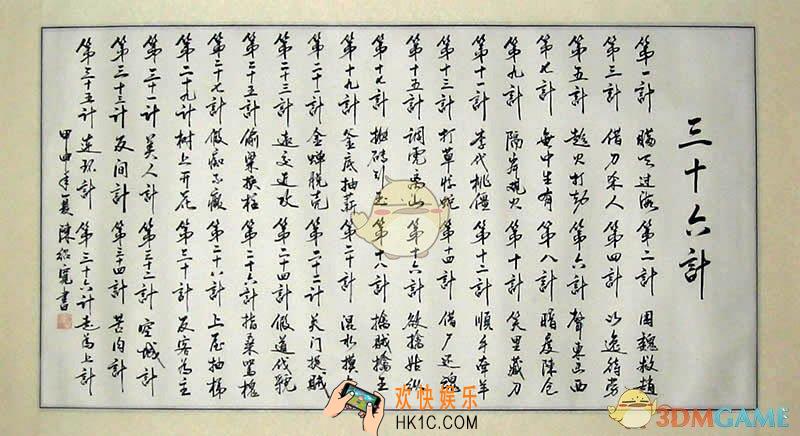 三十六計
第一計 瞞天过海 第二計 围魏救趙
第三計 借刀杀人 第四計 以逸待劳
第五計 趁火打劫 第六計 聲東击西
第七計 無中生有 第八計 暗度陳仓
第九計 隔岸观火 第十計 笑里藏刀
第十一計 李代桃僵 第十二計 順手牵羊
第十三計 打草惊蛇 第十四計 借尸还魂
第十五計 調虎离山 第十六計 欲擒故縱
第十七計 抛砖引玉 第十八計 擒賊擒王
第十九計 釜底抽薪 第二十計 混水摸
第二十一計 金蝉脱壳 第二十二計 关门捉賊
第二十三計 遠交近攻 第二十四計 假道伐虢
第二十五計 偷梁换柱 第二十六計 指桑罵槐
第二十七計 假痴不癫 第二十八計 上屋抽梯
第二十九計 樹上开花 第三十計 反客为主
第三十一計 美人計 第三十二計 空城計
第三十三計 反间計 第三十四計 苦肉計
第三十五計 连环計 第三十六計 走为上計
甲申年夏 陳 書
欢快娱乐
HK1C.COM
3DMGAME